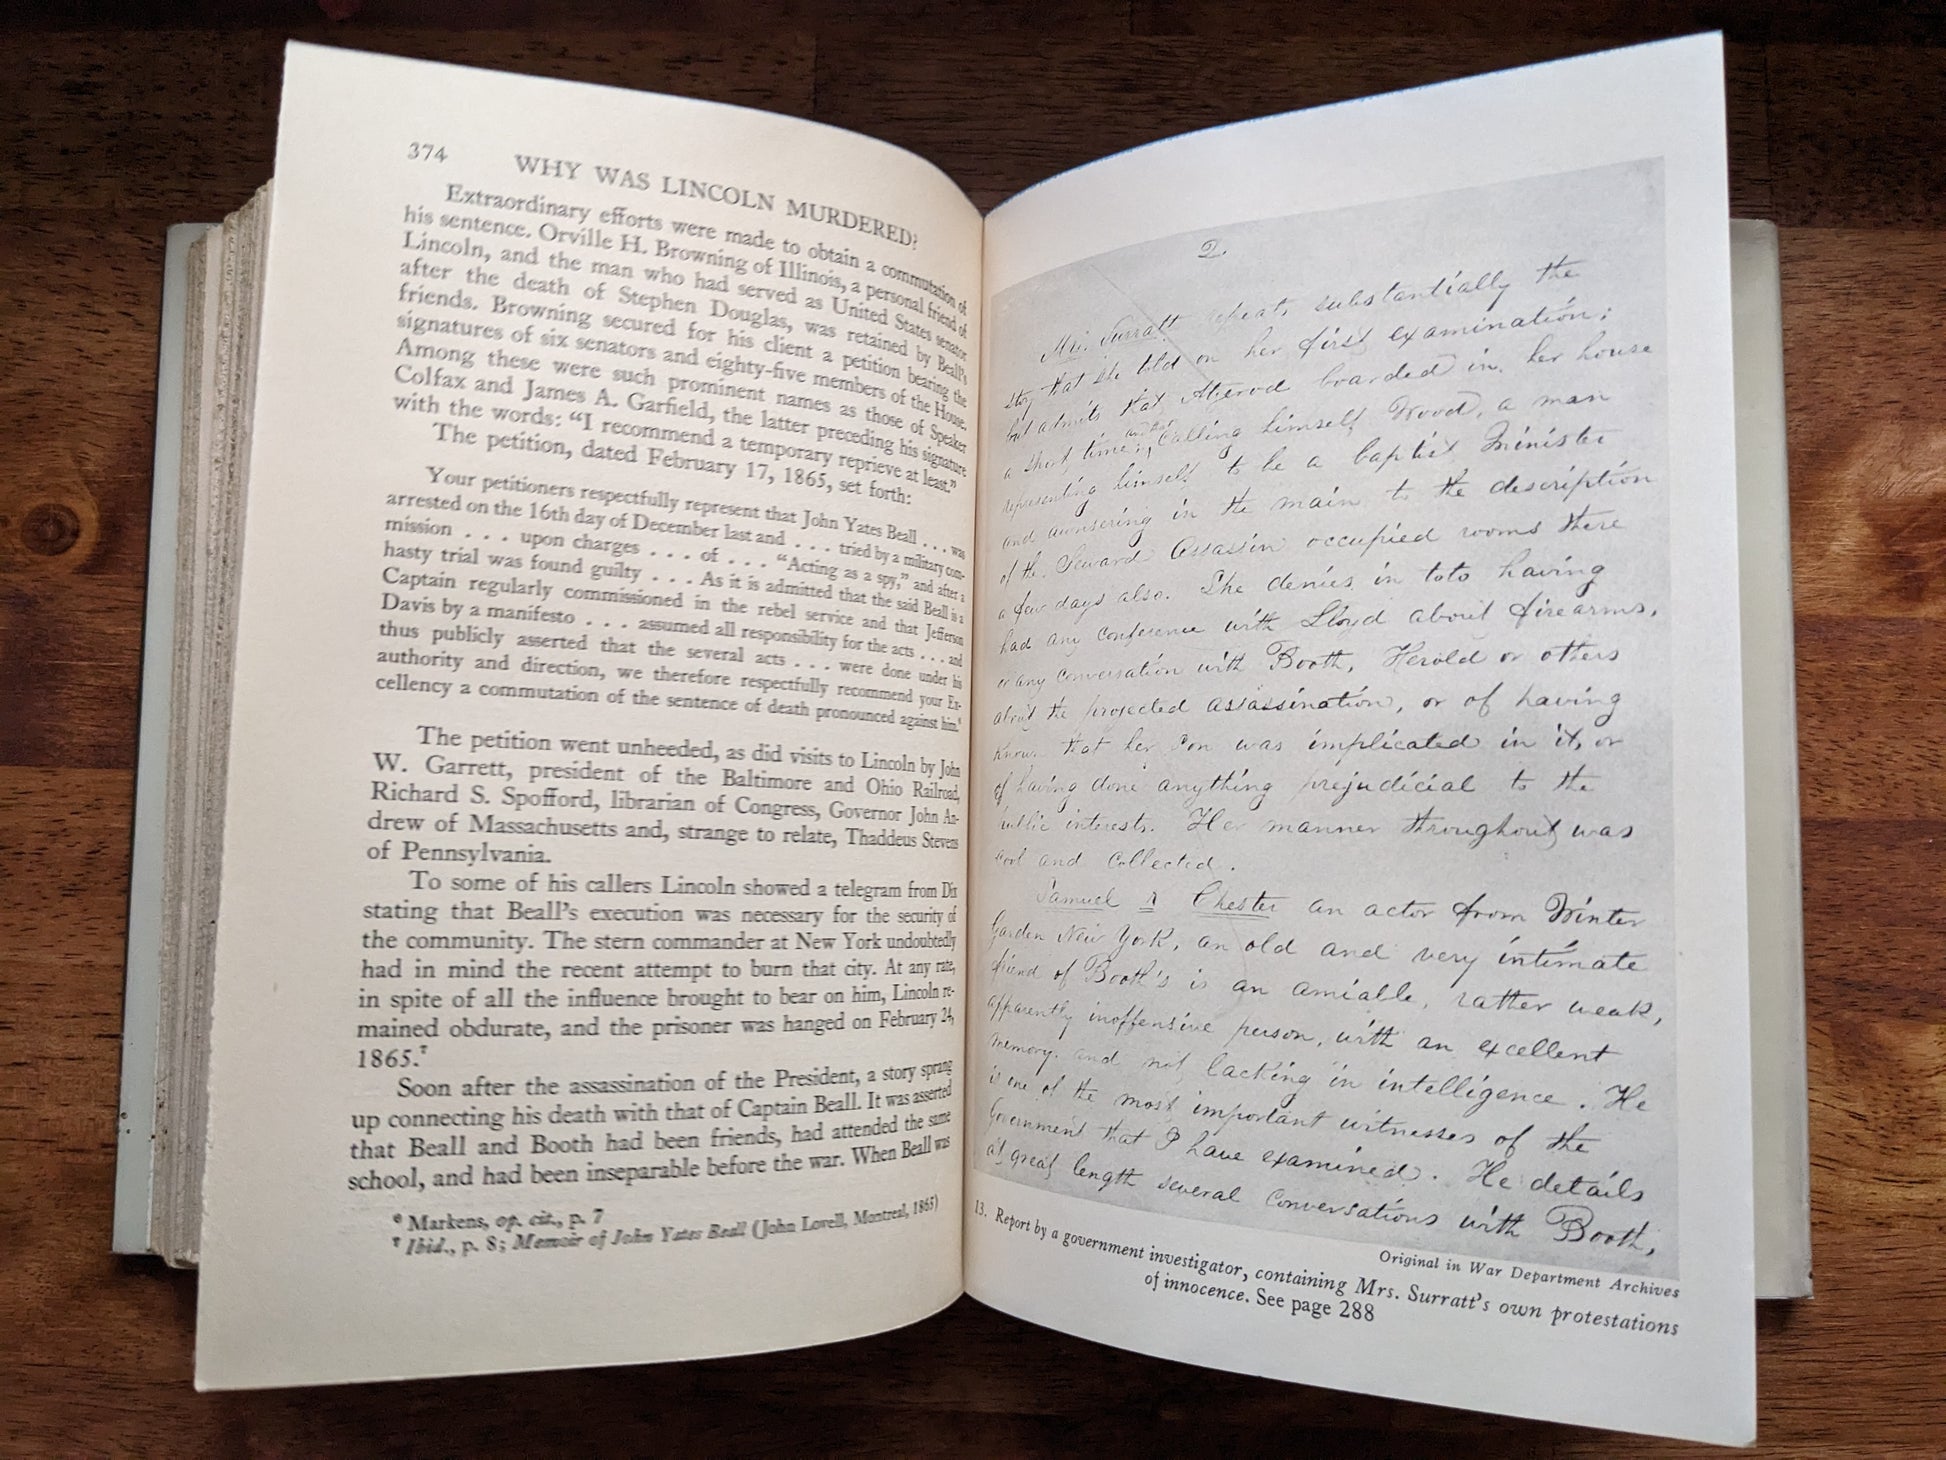 374 WHY WAS LINCOLN MURDERED?
Extraordinary efforts were made to obtain a commutation of
his sentence. Orville H. Browning of Illinois, a personal friend of
Lincoln, and the man who had served as United States senator
after the death of Stephen Douglas, was retained by Beall's
friends. Browning secured for his client a petition bearing the
signatures of six senators and eighty-five members of the House.
Among these were such prominent names as those of Speaker
Colfax and James A. Garfield, the latter preceding his signature
with the words: "I recommend a temporary reprieve at least."
The petition, dated February 17, 1865, set forth:
Your petitioners respectfully represent that John Yates Beall . . . was
arrested on the 16th day of December last and . . . tried by a military com-
mission . . . upon charges . . . of . . . "Acting as a spy," and after a
hasty trial was found guilty . . . As it is admitted that the said Beall is a
Captain regularly commissioned in the rebel service and that Jefferson
Davis by a manifesto . . . assumed all responsibility for the acts . . . and
thus publicly asserted that the several acts . . . were done under his
authority and direction, we therefore respectfully recommend your Ex-
cellency a commutation of the sentence of death pronounced against him.⁶
The petition went unheeded, as did visits to Lincoln by John
W. Garrett, president of the Baltimore and Ohio Railroad,
Richard S. Spofford, librarian of Congress, Governor John An-
drew of Massachusetts and, strange to relate, Thaddeus Stevens
of Pennsylvania.
To some of his callers Lincoln showed a telegram from Dix
stating that Beall's execution was necessary for the security of
the community. The stern commander at New York undoubtedly
had in mind the recent attempt to burn that city. At any rate,
in spite of all the influence brought to bear on him, Lincoln re-
mained obdurate, and the prisoner was hanged on February 24,
1865.⁷
Soon after the assassination of the President, a story sprang
up connecting his death with that of Captain Beall. It was asserted
that Beall and Booth had been friends, had attended the same
school, and had been inseparable before the war. When Beall was
⁶ Markens, op. cit., p. 7
⁷ Ibid., p. 8; Memoir of John Yates Beall (John Lovell, Montreal, 1865)
2.
Mrs. Surratt repeat, substantially the
story that she told on her first examination;
but admits that Atzerod boarded in her house
a short time, another calling himself Wood, a man
representing himself to be a baptist Minister
and aunsering in the main to the description
of the Seward Assassin occupied rooms there
a few days also. She denies in toto having
had any conference with Lloyd about firearms,
or any conversation with Booth, Herold or others
about the projected assassination, or of having
known that her son was implicated in it, or
of having done anything prejudicial to the
public interests. Her manner throughout was
cool and collected.
Samuel K Chester an actor from Winter
Garden New York, an old and very intimate
friend of Booth's is an amiable, rather weak,
apparently inoffensive person, with an excellent
memory and not lacking in intelligence. He
is one of the most important witnesses of the
Government that I have examined. He details
at great length several conversations with Booth,
Original in War Department Archives
13. Report by a government investigator, containing Mrs. Surratt's own protestations
of innocence. See page 288